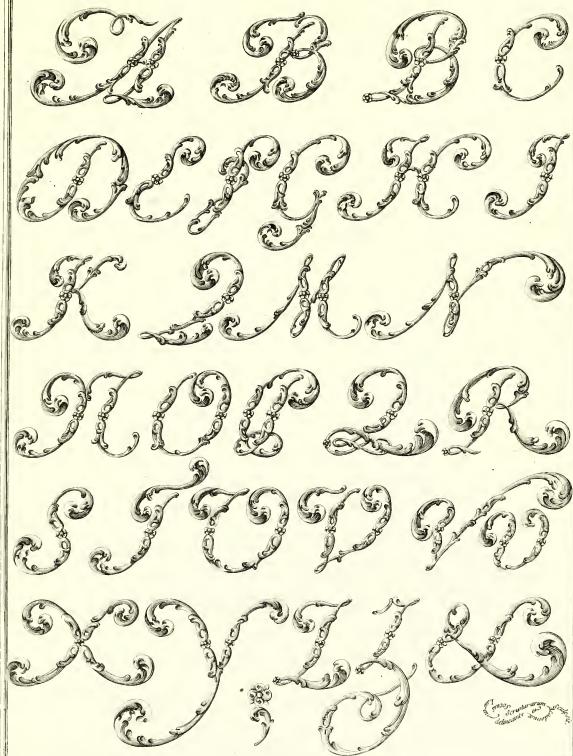 A B B C
D E F G H I
K L M N
N O P Q R
S T U V W
X Y Z Z &